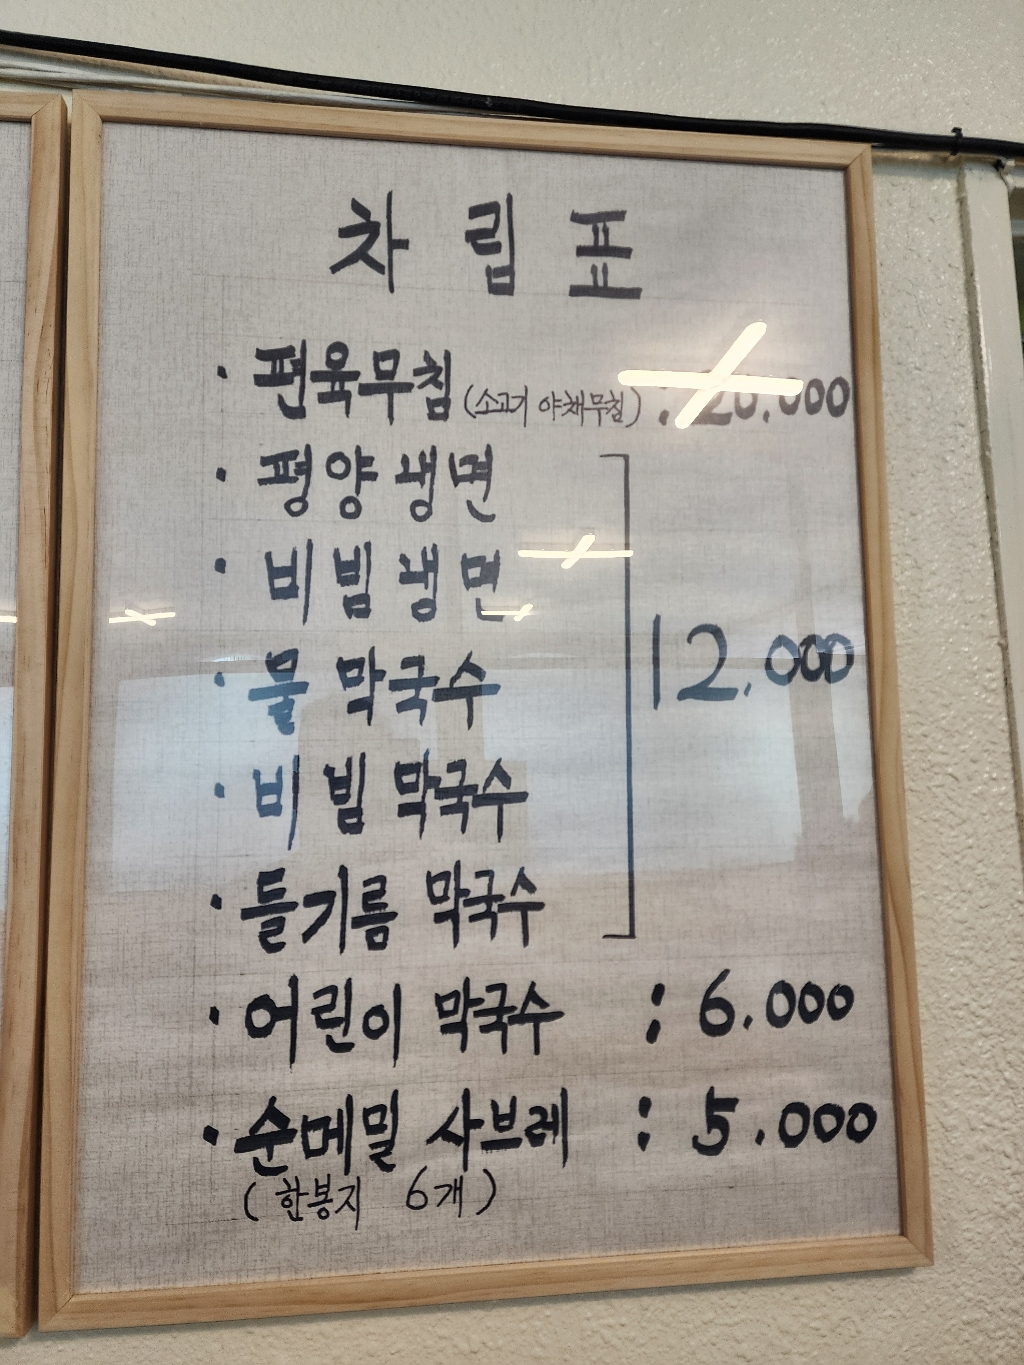 차림표
· 편육무침 (소고기 야채무침) : 20,000
· 평양 냉면
· 비빔 냉면
· 물 막국수
12,000
· 비빔 막국수
· 들기름 막국수
· 어린이 막국수 : 6.000
· 순메밀 사브레 : 5.000
(한봉지 6개)